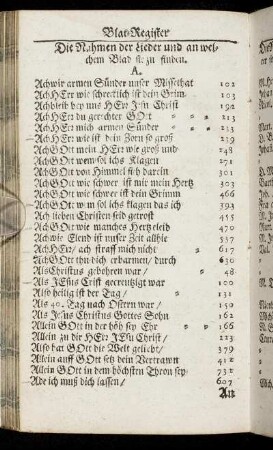 Blat-Register
Die Nahmen der Lieder und an wel-
chem Blad sie zu finden.
A.
Ach wir armen Sünder unser Missethat 102
Ach HErr wie schrecklich ist dein Grim 103
Ach bleib bey uns HErr JEsu Christ 192
Ach HErr du gerechter GOtt 213
Ach HErr mich armen Sünder 233
Ach HErr wie ist dein Zorn so groß 239
Ach GOtt mein HErr wie groß und 248
Ach GOtt wem sol ichs Klagen 271
Ach GOtt von Himmel sieh darein 301
Ach GOtt wie schwer ist mir mein Hertz 303
Ach GOtt wie schwer ist dein Grimm 466
Ach GOtt wem sol ichs klagen das ich 393
Ach lieben Christen seid getrost 455
Ach GOtt wie manches Hertzleid 470
Ach wie Elend ist unser Zeit allhie 537
Ach HErr/ ach straff mich nicht 617
Ach GOtt thu dich erbarmen/ durch 630
Als Christus gebohren war/ 48
Als JEsus Crist gecreutzigt war 100
Also heilig ist der Tag/ 131
Als 40. Tag nach Ostern war/ 150
Als Jesus Christus Gottes Sohn 162
Allein GOtt in der höh sey Ehr 166
Allein zu dir HErr JEsu Christ/ 223
Also hat GOtt die Welt geliebt/ 379
Allein auff GOtt setz dein Vertrawn 412
Allein GOtt in dem höchsten Thron sey 732
Ade ich muß dich lassen/ 607
An